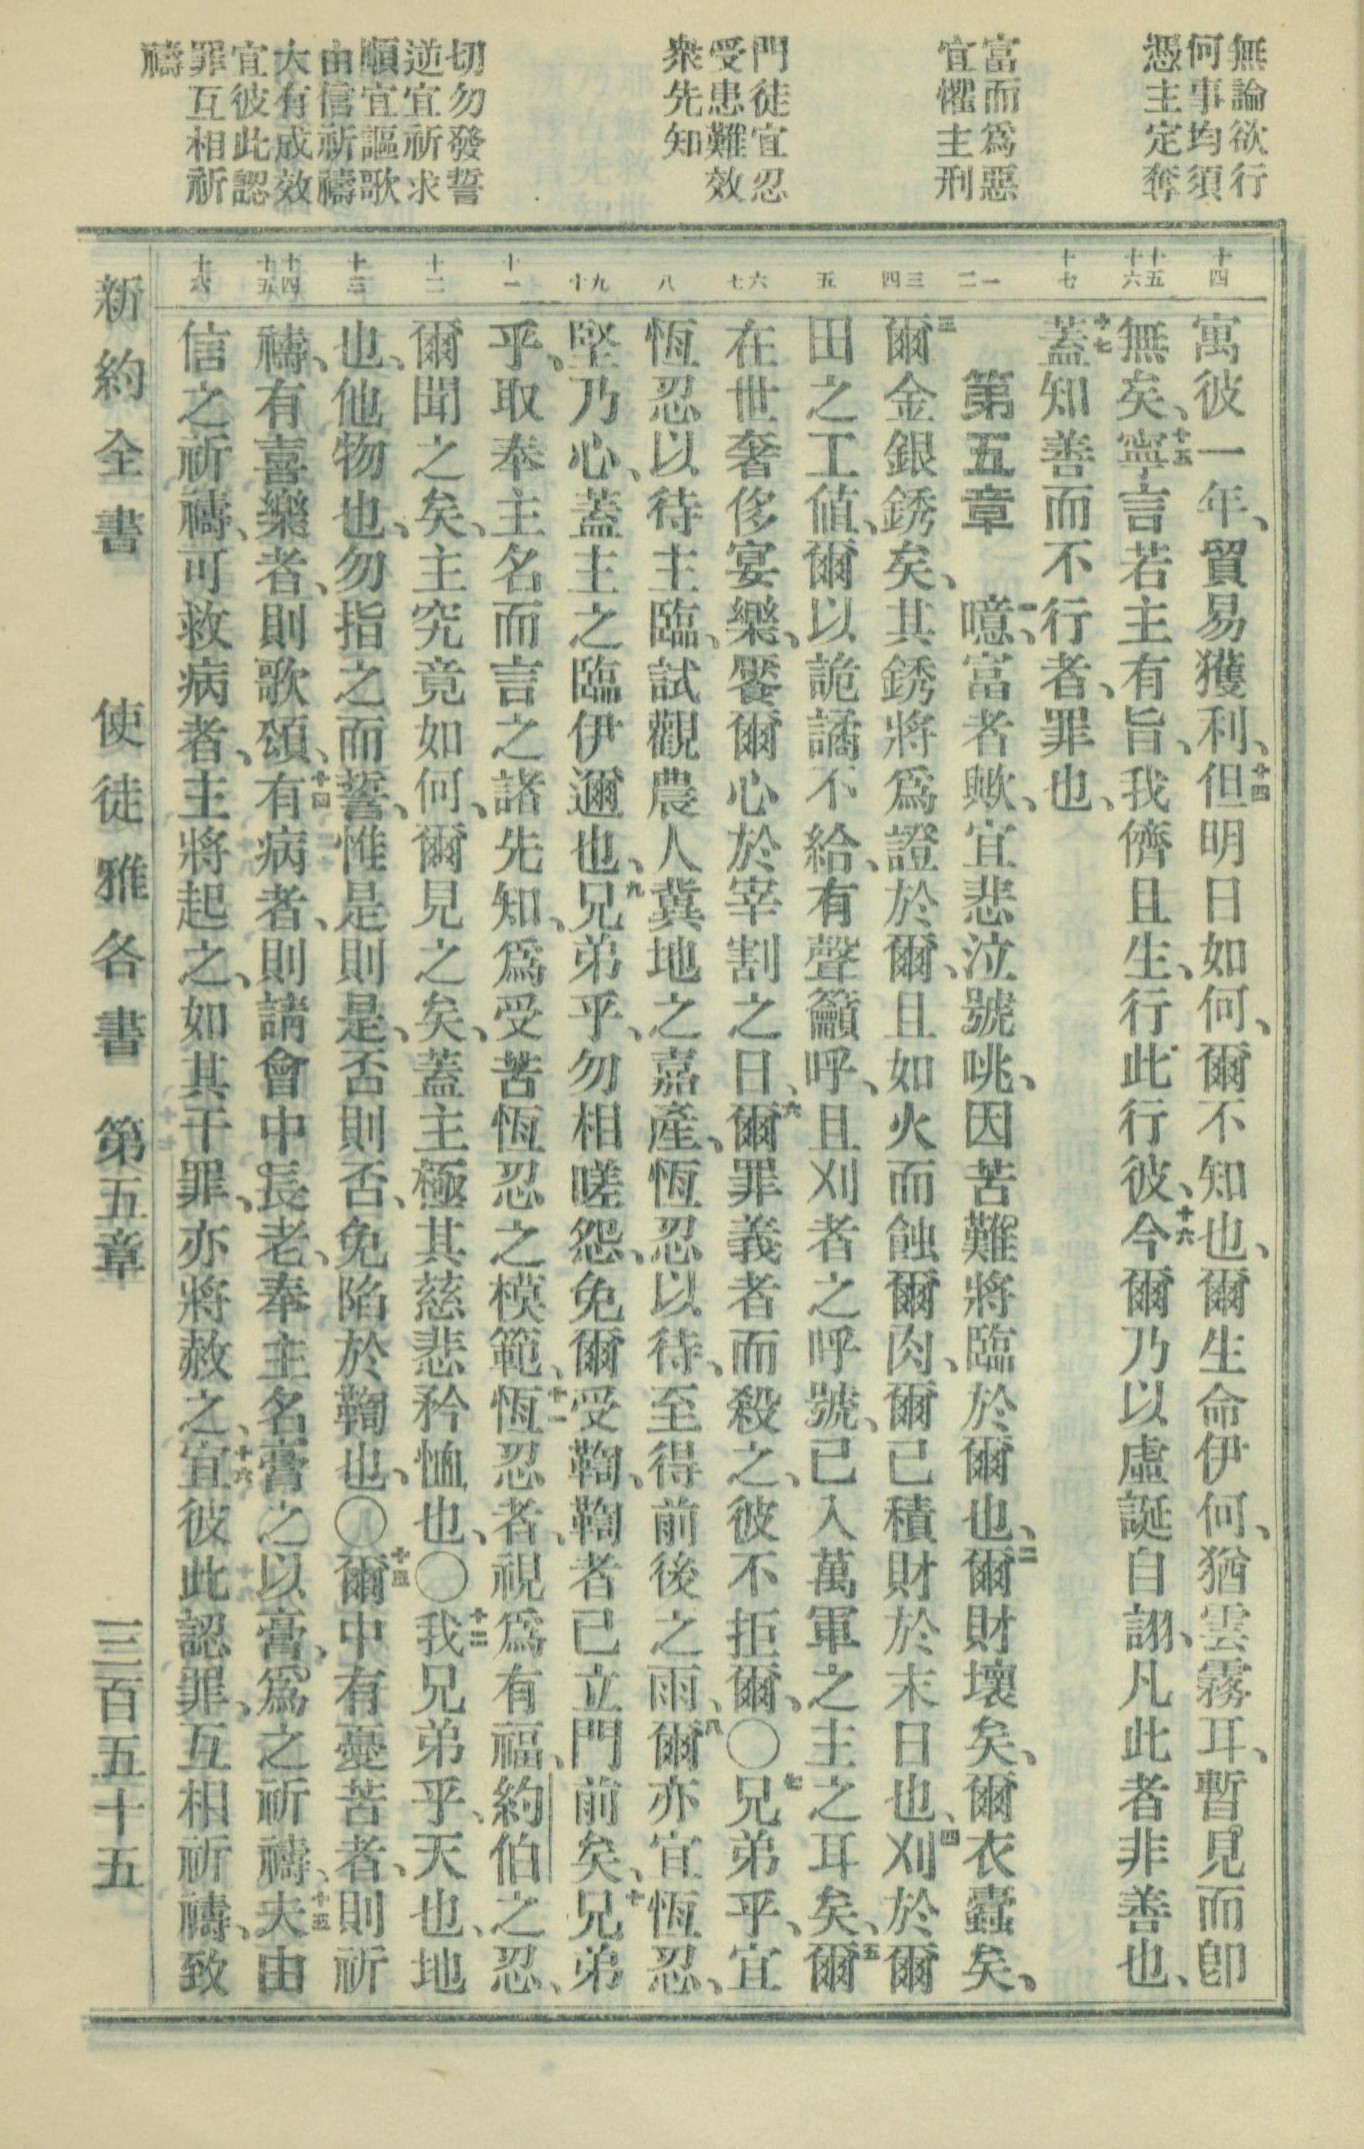 無論欲行
何事均須
憑主定奪
富而爲惡
宜懼主刑
門徒宜忍
受患難效
衆先知
切勿發誓
逆宜祈求
順宜謳歌
由信祈禱
大有成效
宜彼此認
罪互相祈
禱
十四
十五
十六
十七
一
二
三
四
五
六
七
八
九
十
十一
十二
十三
十四
十五
十六
寓彼一年、貿易獲利、十四但明日如何、爾不知也、爾生命伊何、猶雲霧耳、暫見而卽
無矣、十五寧言若主有旨、我儕且生、行此行彼、十六今爾乃以虛誕自詡、凡此者非善也、
十七蓋知善而不行者、罪也、
第五章 一噫、富者歟、宜悲泣號咷、因苦難將臨於爾也、二爾財壞矣、爾衣蠹矣、
三爾金銀銹矣、其銹將爲證於爾、且如火而蝕爾肉、爾已積財於末日也、四刈於爾
田之工値、爾以詭譎不給、有聲籲呼、且刈者之呼號、已入萬軍之主之耳矣、五爾
在世奢侈宴樂、饜爾心於宰割之日、六爾罪義者而殺之、彼不拒爾、〇七兄弟乎、宜
恆忍以待主臨、試觀農人冀地之嘉產、恆忍以待、至得前後之雨、八爾亦宜恆忍、
堅乃心、蓋主之臨伊邇也、九兄弟乎、勿相嗟怨、免爾受鞫、鞫者已立門前矣、十兄弟
乎、取奉主名而言之諸先知、爲受苦恆忍之模範、十一恆忍者、視爲有福、約伯之忍、
爾聞之矣、主究竟如何、爾見之矣、蓋主極其慈悲矜恤也、〇十二我兄弟乎、天也、地
也、他物也、勿指之而誓、惟是則是、否則否、免陷於鞫也、〇十三爾中有憂苦者、則祈
禱、有喜樂者、則歌頌、十四有病者、則請會中長老、奉主名膏之以膏、爲之祈禱、十五夫由
信之祈禱、可救病者、主將起之、如其干罪、亦將赦之、十六宜彼此認罪、互相祈禱、致
新約全書 使徒雅各書 第五章 三百五十五